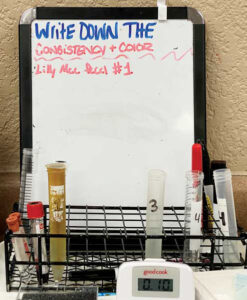 WRITE DOWN THE
CONSISTENCY + COLOR
Lilly Mae fecal #1
3
4
good cook
0 10